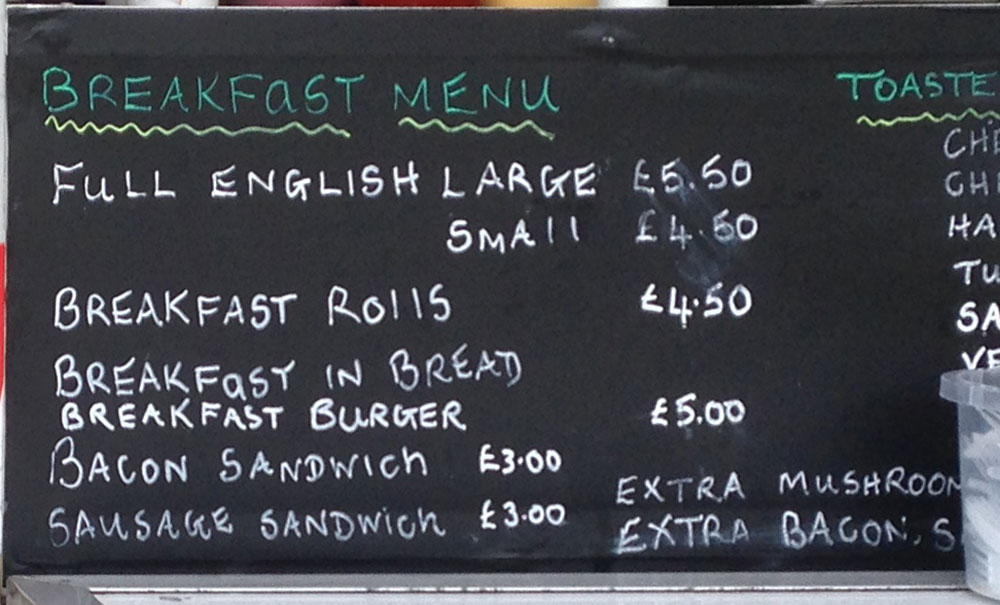 BREAKFaST MENU
FULL ENGLISH LARGE £5.50
SMAll £4.50
BREAKFAST ROllS £4.50
BREAKFaST IN BREAD
BREAKFAST BURGER £5.00
BACON SANDWICh £3.00
SAUSAGE SANDWICh £3.00
EXTRA MUSHROOM
EXTRA BACON, S
TOASTE
CHE
CHE
HA
TU
SA
VE